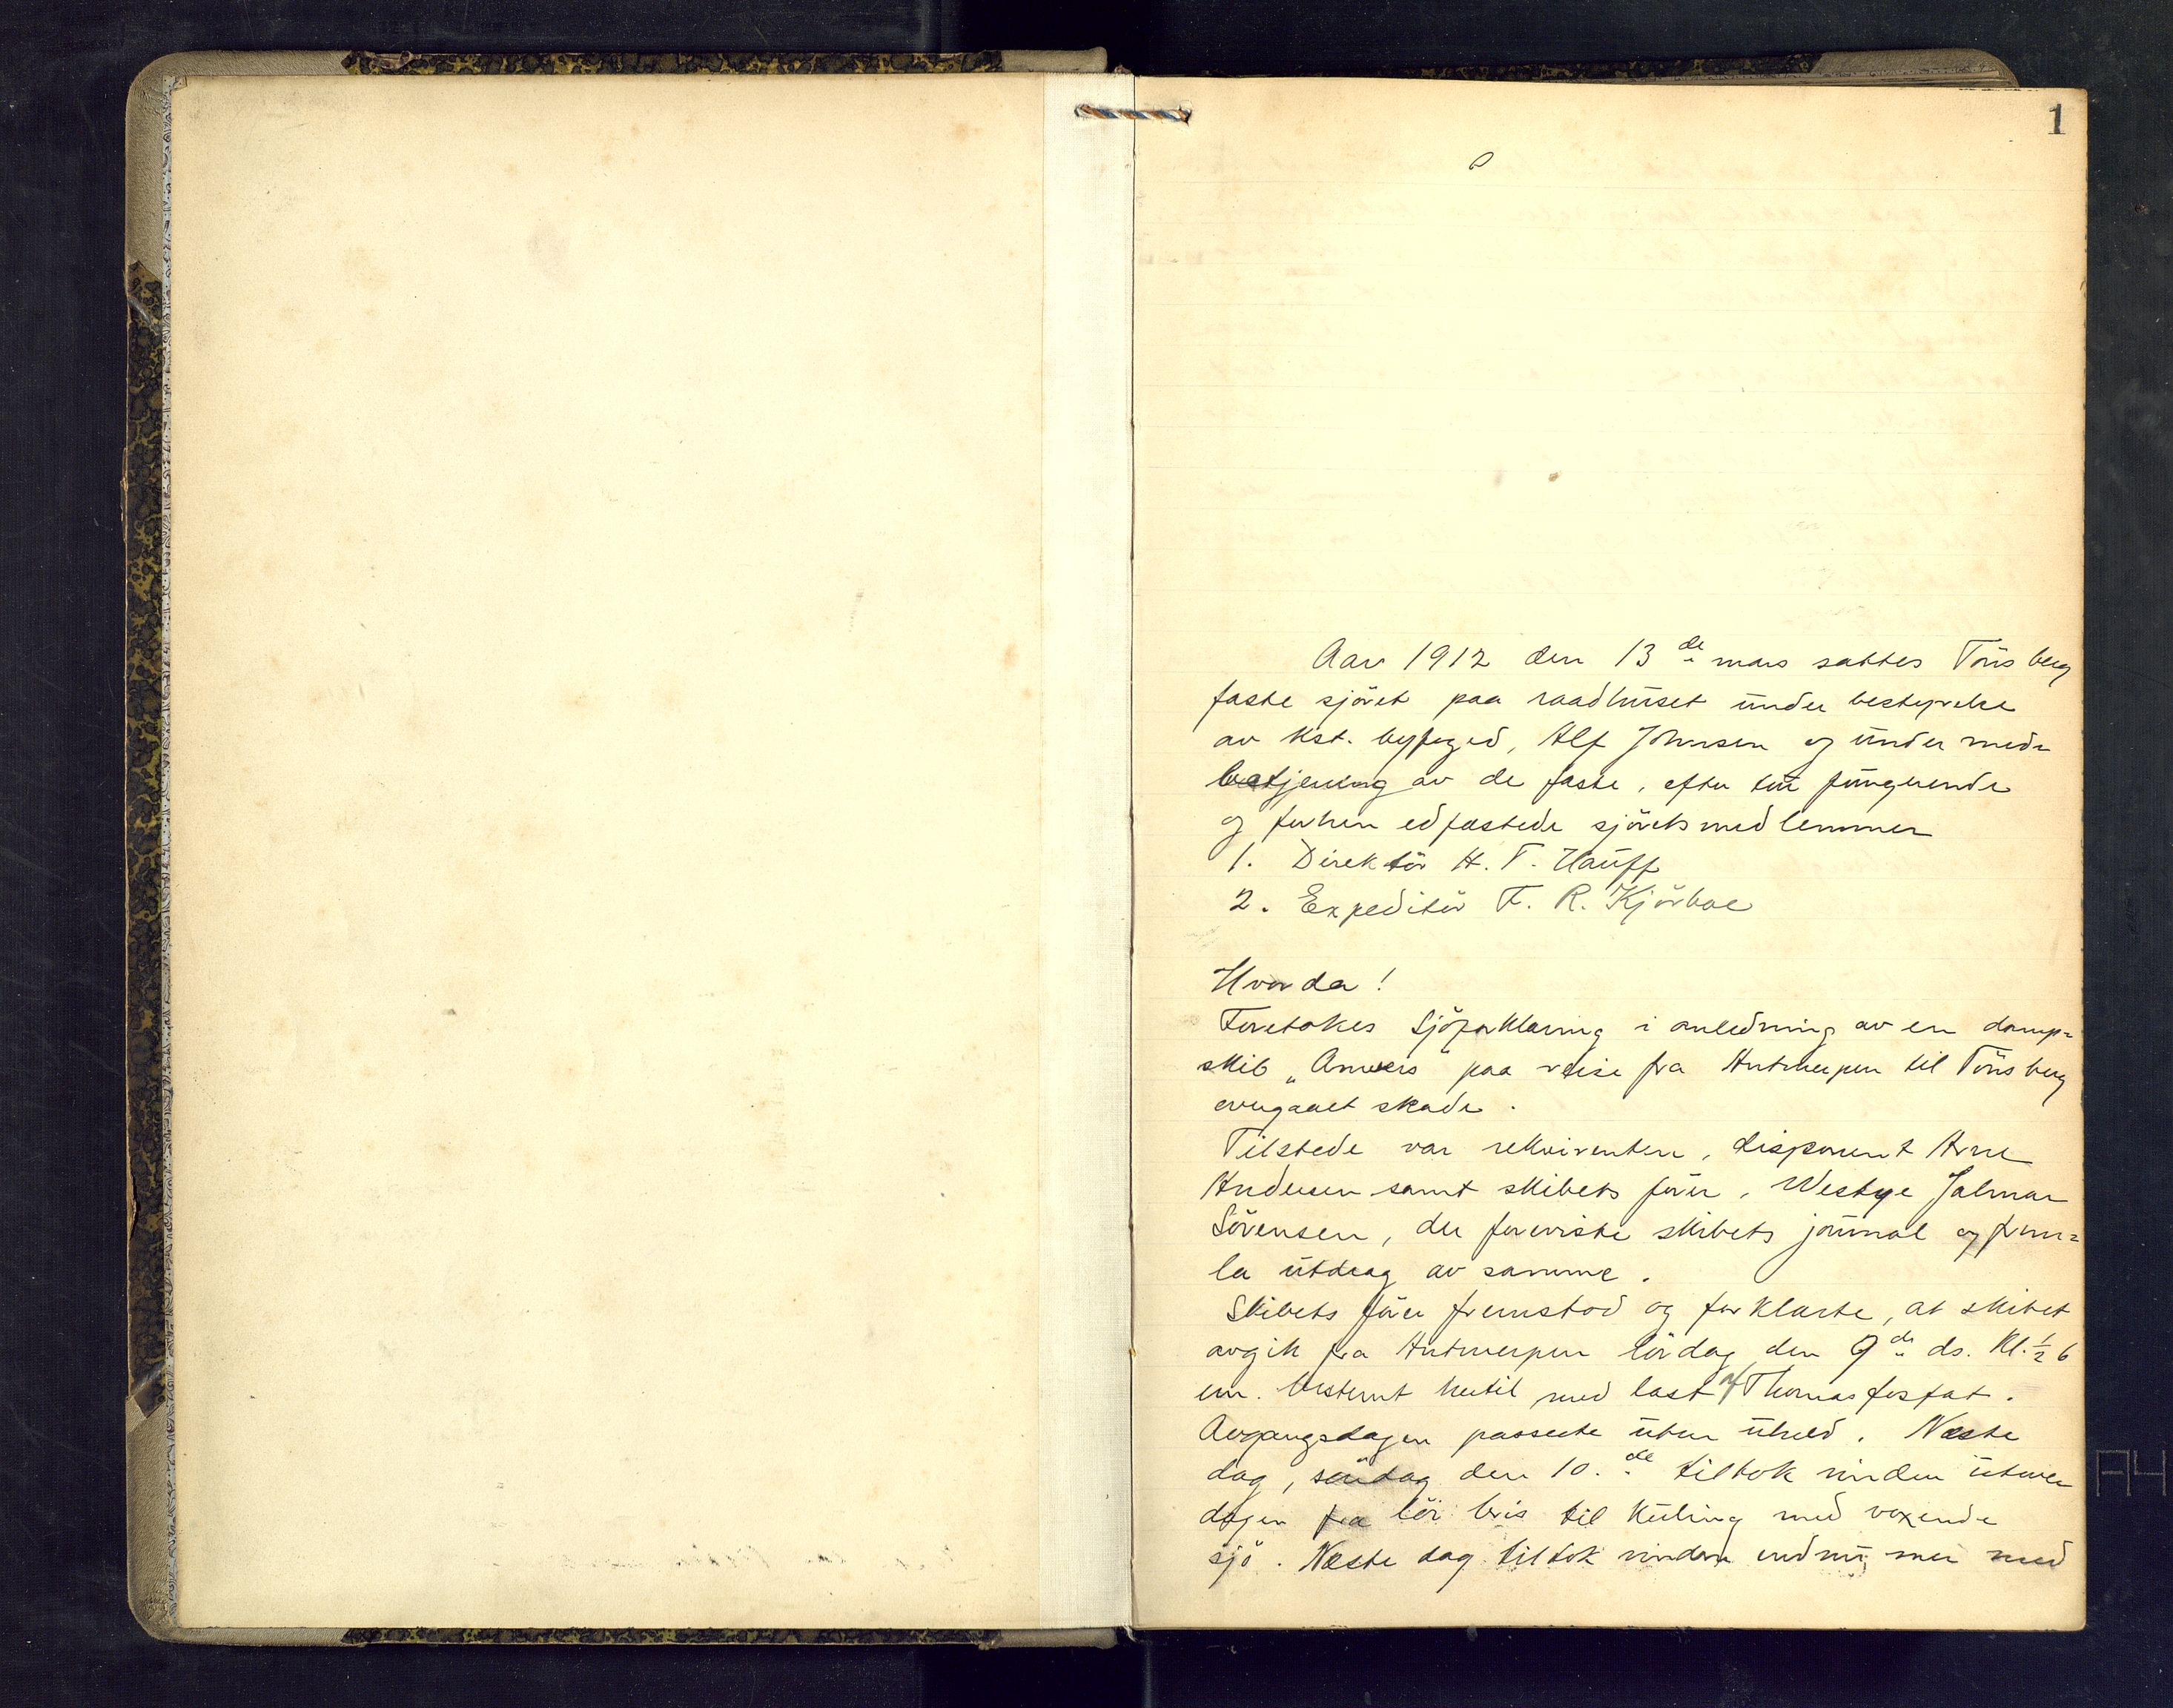 1
Aar 1912 den 13de mars sattes Tönsberg
faste sjöret paa raadhuset under bestyrelse
av kst. byfoged, Alf Johnsen og under med-
betjening av de faste, efter tur fungerende
og forhen edfæstede sjöretsmedlemmer
1. Direktör H. T. Hauff
2. Expeditör F. R. Kjörboe
Hvorda!
Foretokes Sjöforklaring i anledning av en damp-
skib „Anvers" paa reise fra Antwerpen til Tönsberg
overgaaet skade.
Tilstede var rekvirenten, disponent Arne
Andersen samt skibets förer, Westye Jalmar
Sörensen, der foreviste skibets journal og frem-
la utdrag av samme.
Skibets förer fremstod og forklarte, at skibet
avgik fra Antwerpen lördag den 9de ds. kl. ½ 6
em. bestemt hertil med last af Thomasfosfat.
Avgangsdagen passerte uten uheld. Næste
dag, söndag den 10.de tiltok vinden utover
dagen fra lör bris til kuling med voxende
sjö. Næste dag tiltok vinden endnu mer med